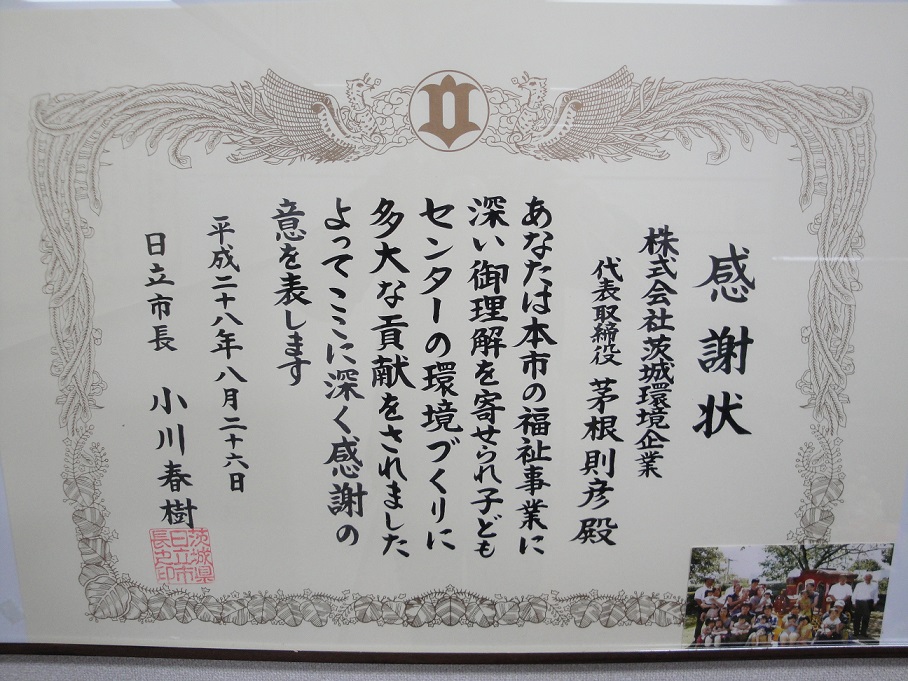 感謝状
株式会社茨城環境企業
代表取締役 茅根則彦 殿
あなたは本市の福祉事業に
深い御理解を寄せられ子ども
センターの環境づくりに
多大な貢献をされました
よってここに深く感謝の
意を表します
平成二十八年八月二十六日
日立市長 小川春樹
茨城県
日立市
長之印